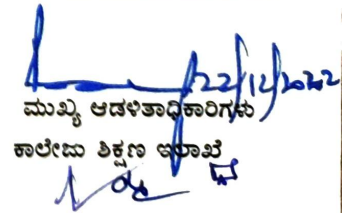 22/12/2022
ಮುಖ್ಯ ಆಡಳಿತಾಧಿಕಾರಿಗಳು
ಕಾಲೇಜು ಶಿಕ್ಷಣ ಇಲಾಖೆ